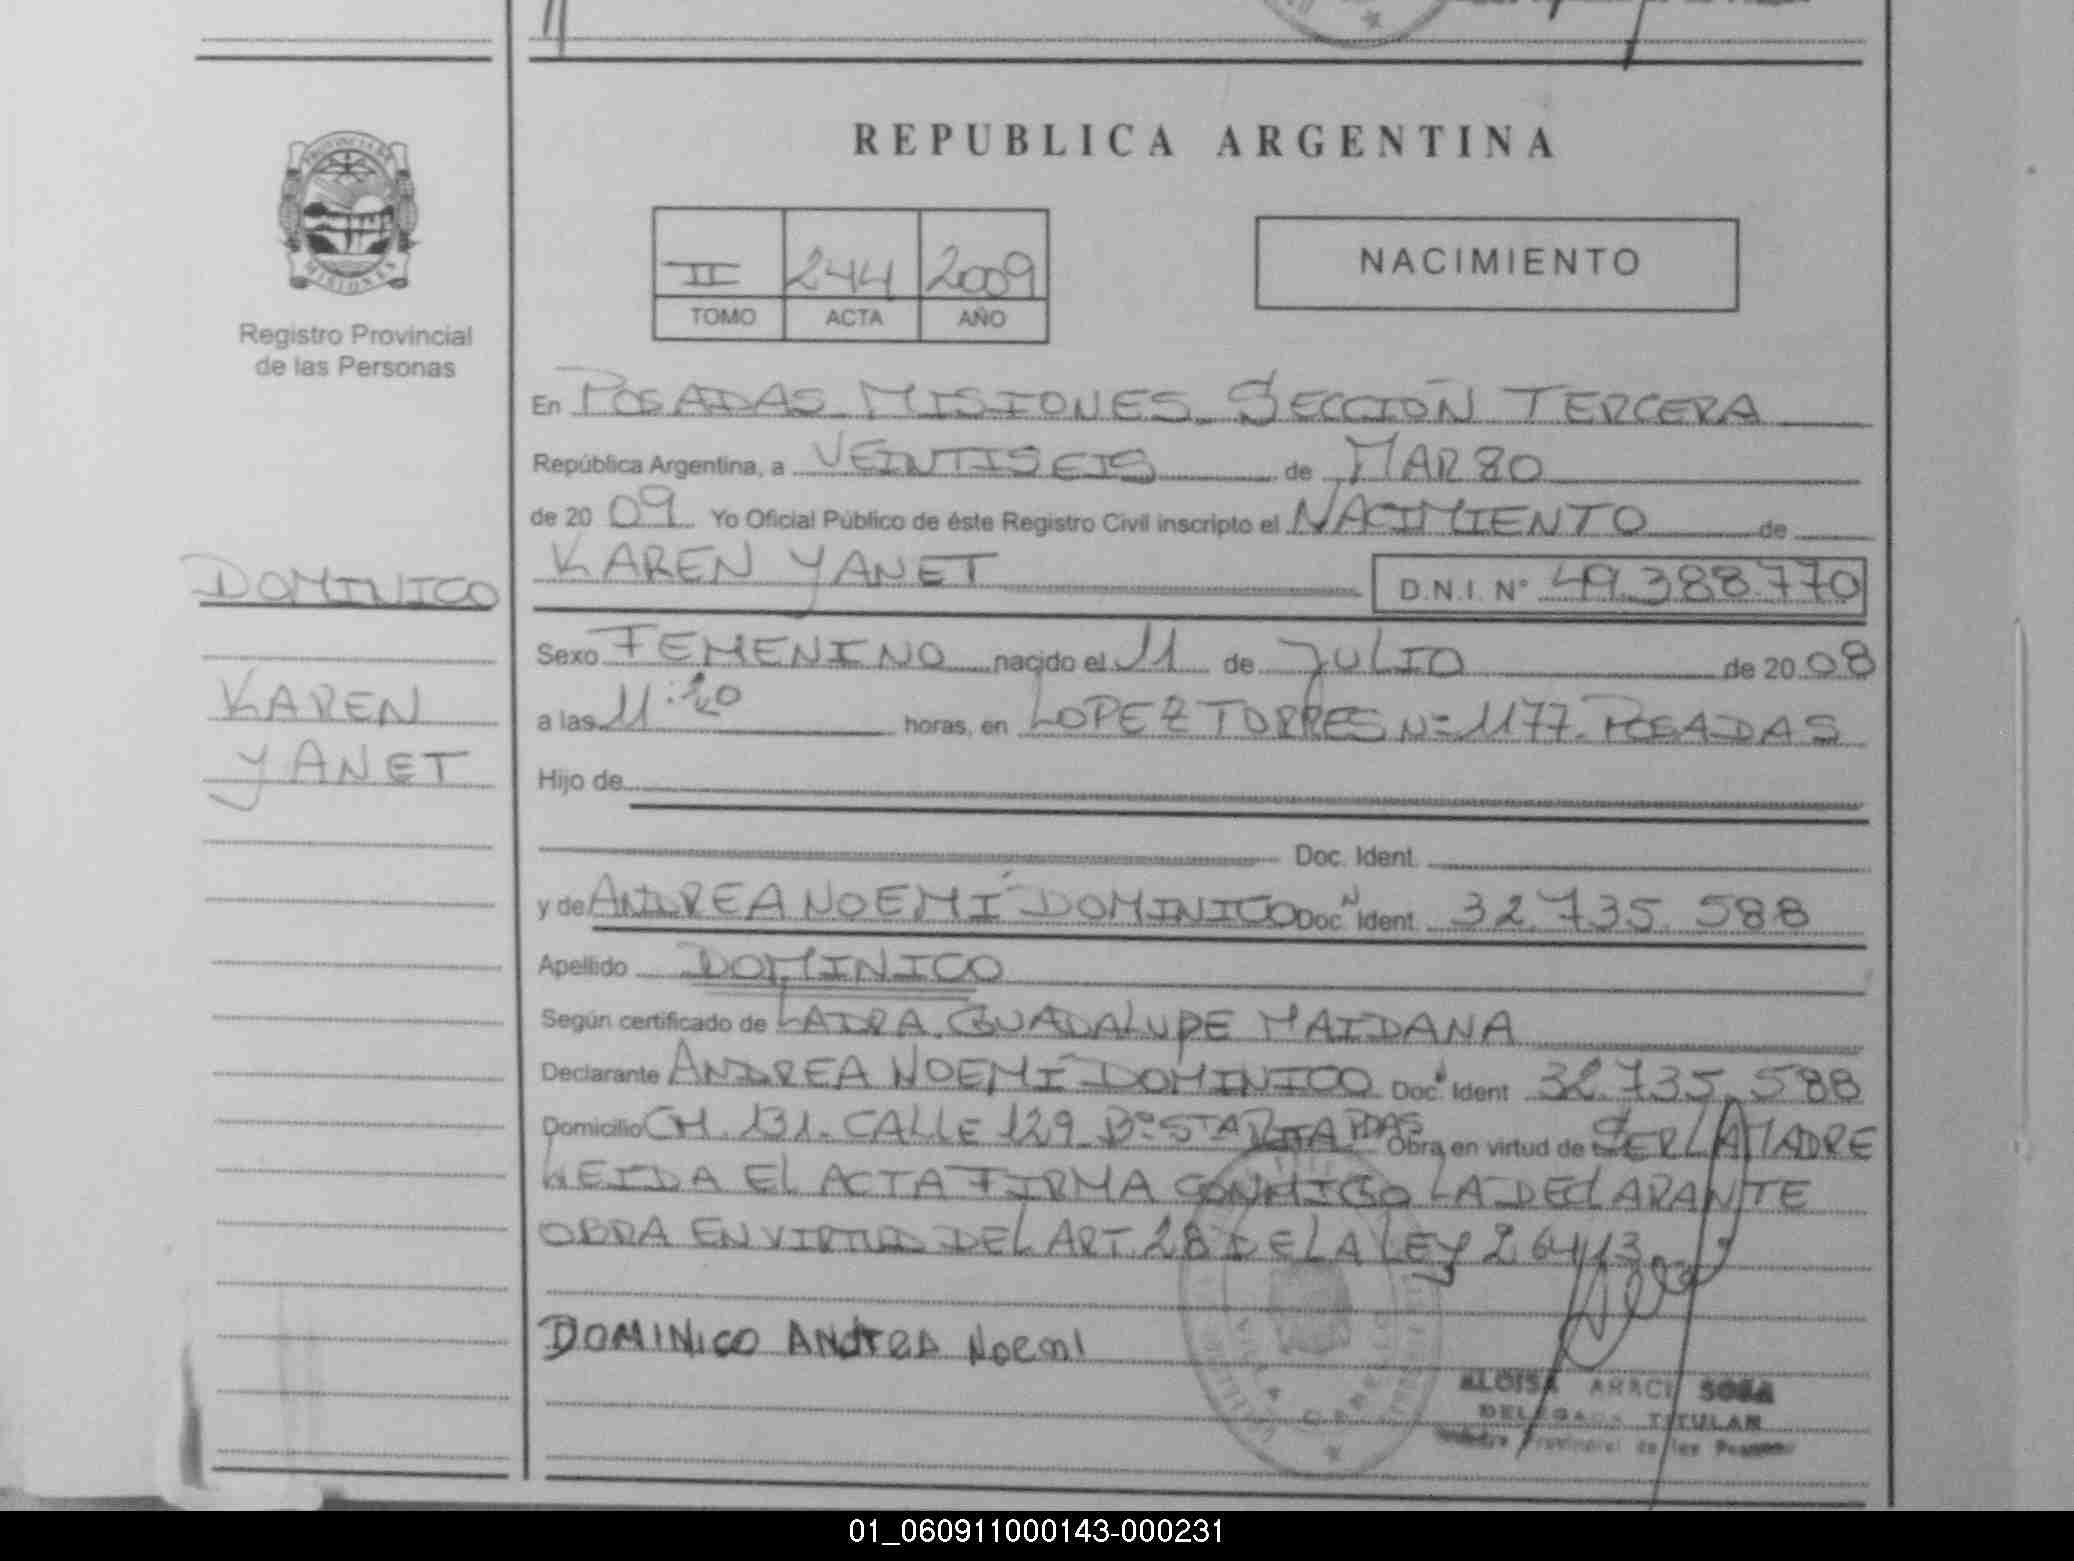 REPUBLICA ARGENTINA
PROVINCIA DE
MISIONES
Registro Provincial
de las Personas
II 244 2009
TOMO ACTA AÑO
NACIMIENTO
En POSADAS MISIONES. SECCIÓN TERCERA
República Argentina, a VEINTISEIS de MARZO
de 20 09 Yo Oficial Público de éste Registro Civil inscripto el NACIMIENTO de
KAREN YANET D.N.I. Nº 49.388.770
DOMINICO
KAREN
YANET
Sexo FEMENINO nacido el 11 de JULIO de 20 08
a las 11:20 horas, en LOPEZ TORRES Nº 1177. POSADAS
Hijo de
Doc. Ident.
y de ANDREA NOEMÍ DOMINICO Doc. Ident. 32.735.588
Apellido DOMINICO
Según certificado de LAIRA GUADALUPE MAIDANA
Declarante ANDREA NOEMÍ DOMINICO Doc. Ident 32.735.588
Domicilio CH. 131. CALLE 129 Bº STA RITA PDAS Obra en virtud de SER LA MADRE
LEIDA EL ACTA FIRMA CONMIGO LA DECLARANTE
OBRA EN VIRTUD DEL ART. 28 DE LA LEY 26413
DOMINICO ANDREA NOEMI
ALOISA ARACI SOSA
DELEGADA TITULAR
Provincial de las Personas
01_060911000143-000231